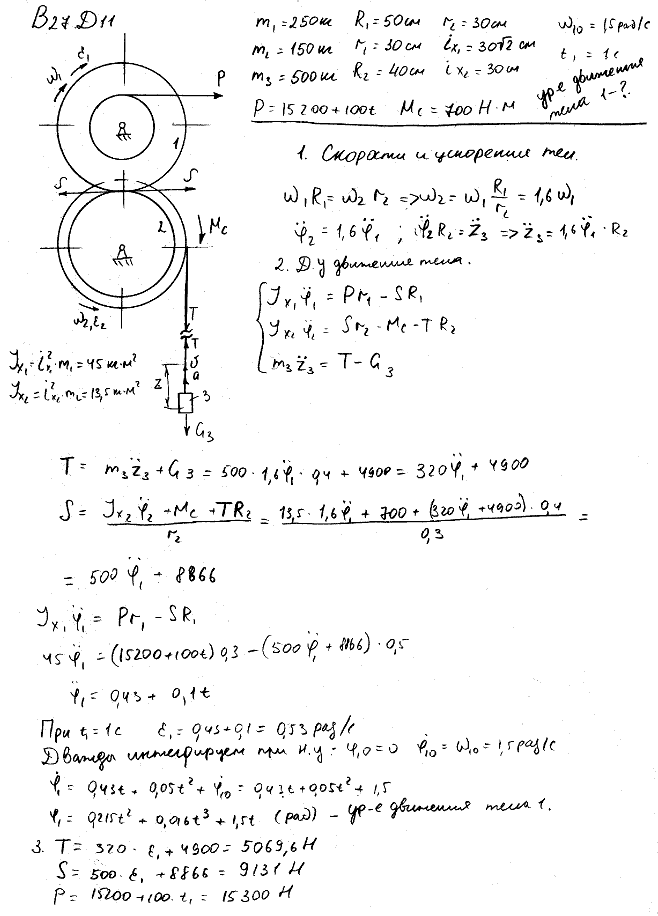 В27 D11
m₁ = 250 кг R₁ = 50 см r₂ = 30 см ω₁₀ = 1,5 рад/с
m₂ = 150 кг r₁ = 30 см iₓ₁ = 30√2 см t₁ = 1 с
m₃ = 500 кг R₂ = 40 см iₓ₂ = 30 см
P = 15200 + 100t Mc = 700 Н·м ур-е движения тела 1 - ?
ω₁ ε₁
P
1
S S
2 Mc
ω₂, ε₂
T
T
υ
a
z
3
G₃
Jx₁ = i²x₁·m₁ = 45 кг·м²
Jx₂ = i²x₂·m₂ = 13,5 кг·м²
1. Скорости и ускорения тел.
ω₁R₁ = ω₂r₂ => ω₂ = ω₁ R₁/r₂ = 1,6 ω₁
φ̈₂ = 1,6 φ̈₁ ; φ̈₂R₂ = z̈₃ => z̈₃ = 1,6 φ̈₁·R₂
2. Д.у движения тела.
Jx₁ φ̈₁ = Pr₁ - SR₁
Jx₂ φ̈₂ = Sr₂ - Mc - TR₂
m₃z̈₃ = T - G₃
T = m₃z̈₃ + G₃ = 500·1,6φ̈₁·0,4 + 4900 = 320φ̈₁ + 4900
S = (Jx₂φ̈₂ + Mc + TR₂)/r₂ = (13,5·1,6φ̈₁ + 700 + (320φ̈₁ + 4900)·0,4)/0,3 =
= 500φ̈₁ + 8866
Jx₁φ̈₁ = Pr₁ - SR₁
45φ̈₁ = (15200 + 100t)0,3 - (500φ̈₁ + 8866)·0,5
φ̈₁ = 0,43 + 0,1t
При t₁ = 1 с ε₁ = 0,43 + 0,1 = 0,53 рад/с
Дважды интегрируем при н.у: φ₁₀ = 0 φ̇₁₀ = ω₁₀ = 1,5 рад/с
φ̇₁ = 0,43t + 0,05t² + φ̇₁₀ = 0,43t + 0,05t² + 1,5
φ₁ = 0,215t² + 0,016t³ + 1,5t (рад) - ур-е движения тела 1.
3. T = 320·ε₁ + 4900 = 5069,6 Н
S = 500·ε₁ + 8866 = 9131 Н
P = 15200 + 100·t₁ = 15300 Н